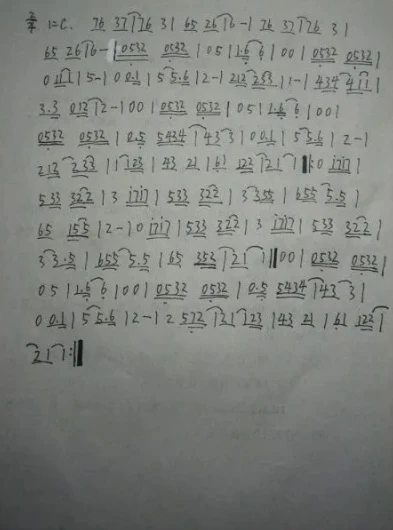 2/4 1=C. 76 37|76 3| 65 26|6-| 76 37|76 3|
65 26|6-|0532 0532|05|1.6 6|00|0532 0532|
0 111|5-|0 0.1|5 5.6|2-|212 233|1-|434 411|
3.3 012|2-|00|0532 0532|05|1.6 6|00|
0532 0532|0.5 5434|43 3|0 0.1|5 5.6|2-|
212 233|1 123|43 21|61 122|21 1‖:0 1717|
533 322|3 1717|533 322|3 355|655 5.5|
65 155|2-|0 1717|533 322|3 1717|533 322|
3 3.5|655 5.5|65 352|21 1‖00|0532 0532|
05|1.6 6|00|0532 0532|0.5 5434|43 3|
0 0.1|5 5.6|2-|2 572|21 23|43 21|61 122|
21 1:‖